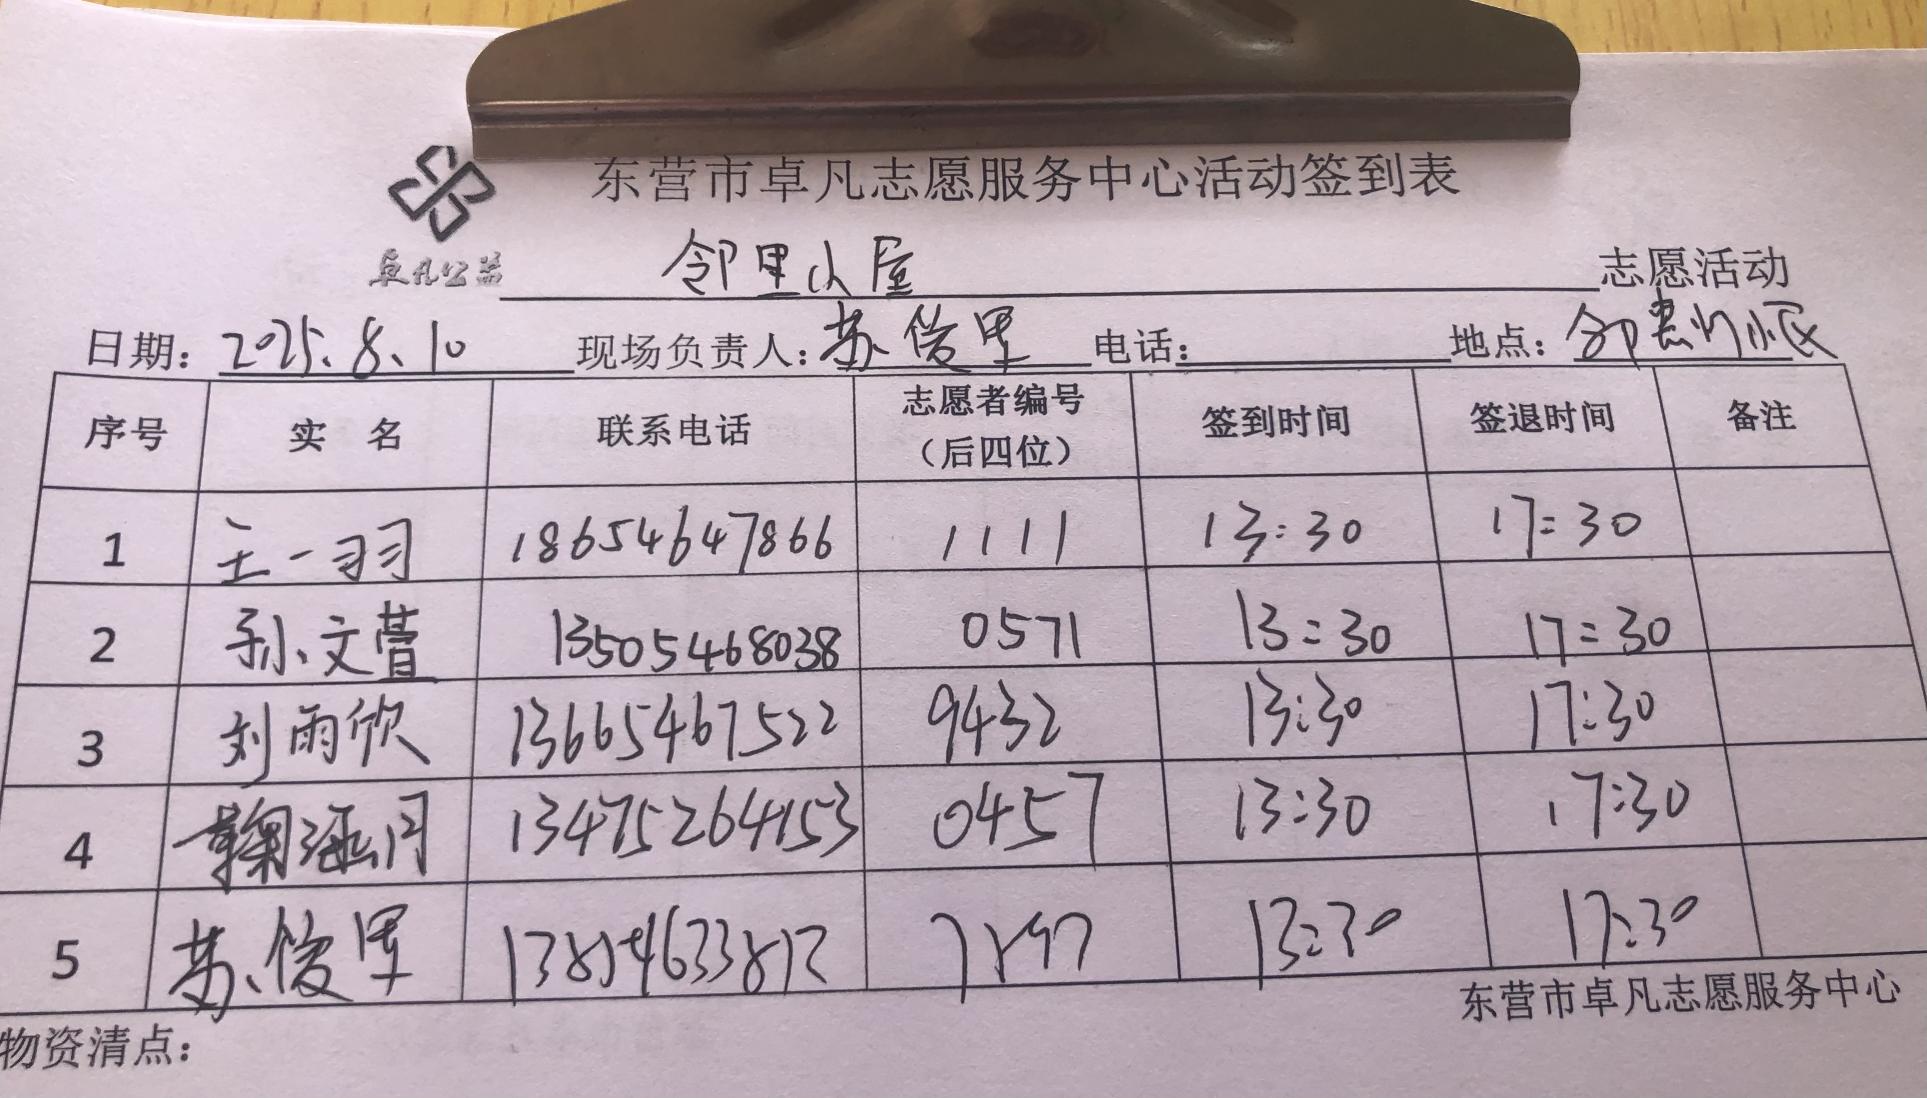 东营市卓凡志愿服务中心活动签到表
卓凡公益 邻里小屋 志愿活动
日期: 2025.8.10 现场负责人: 苏俊里 电话: 地点:
序号 实 名 联系电话 志愿者编号（后四位） 签到时间 签退时间 备注
1 王一羽 18654647866 1111 13:30 17:30
2 孙文萱 13505468038 0571 13:30 17:30
3 刘雨欣 13665467522 9432 13:30 17:30
4 鞠涵月 13475264153 0457 13:30 17:30
5 苏俊里 13:30 17:30
东营市卓凡志愿服务中心
物资清点: